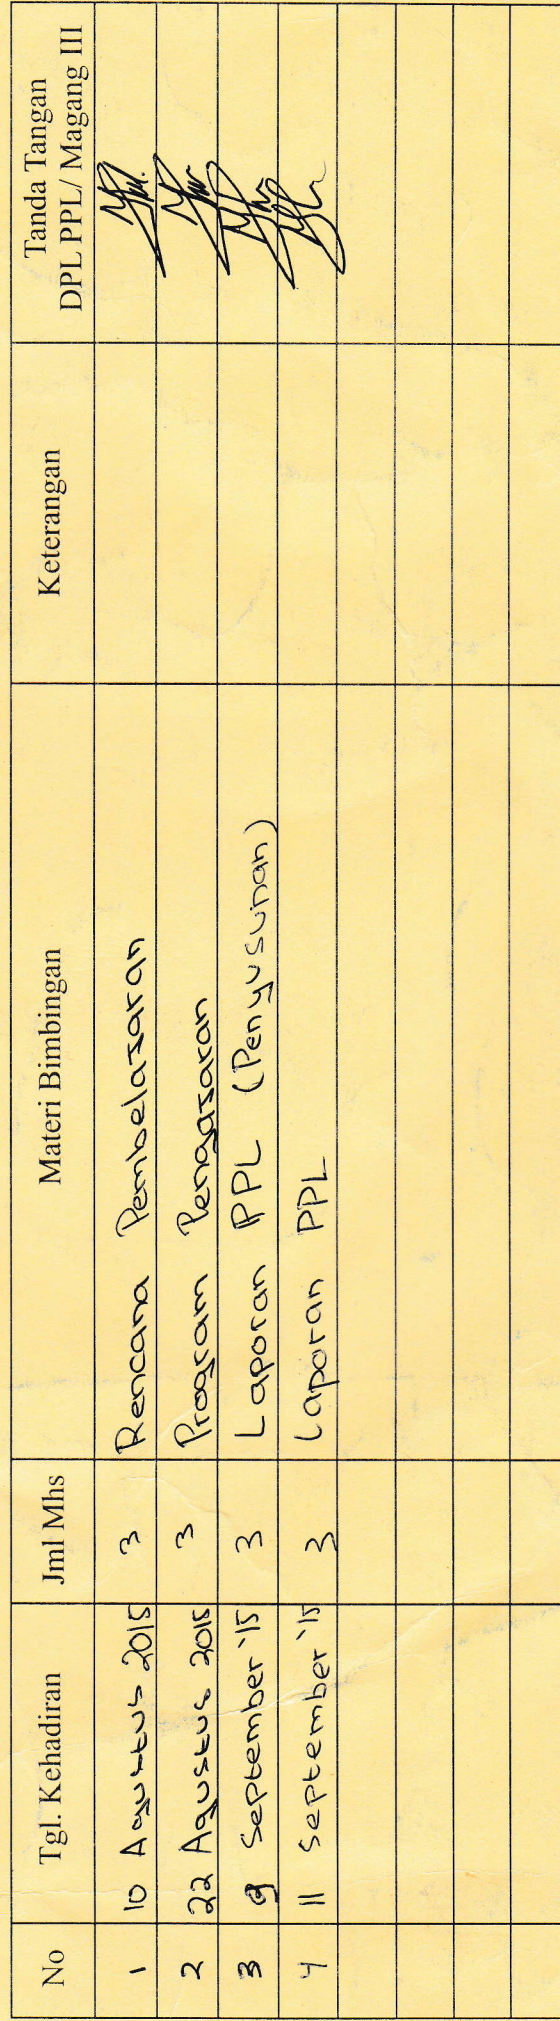 No Tgl. Kehadiran Jml Mhs Materi Bimbingan Keterangan Tanda Tangan DPL PPL/ Magang III
1 10 Agustus 2015 3 Rencana Pembelajaran
2 22 Agustus 2015 3 Program Pengajaran
3 9 September '15 3 Laporan PPL (Penyusunan)
4 11 September '15 3 Laporan PPL